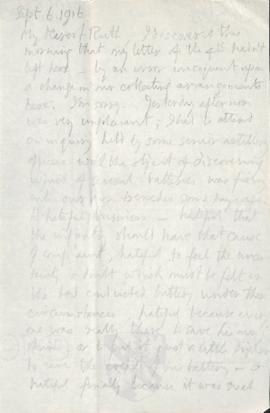 Sept. 6. 1916
My dearest Ruth I discovered this
morning that my letter of the 4th hadn't
left here – by an error consequent upon
a change in our collecting arrangements
here. I'm sorry. Yesterday afternoon
was very unpleasant; I had to attend
an inquiry held by some senior artillery
officers with the object of discovering
which of several batteries was firing
into our own trenches some days ago.
A hateful business – hateful that
the infantry should have that cause
of complaint, hateful to feel the uncer
tainty & doubt which must be felt in
the best conducted battery under these
circumstances, hateful because every
one was really there to save his own
skin or at best just a little higher
to save the credit of his battery – &
hateful finally because it was such